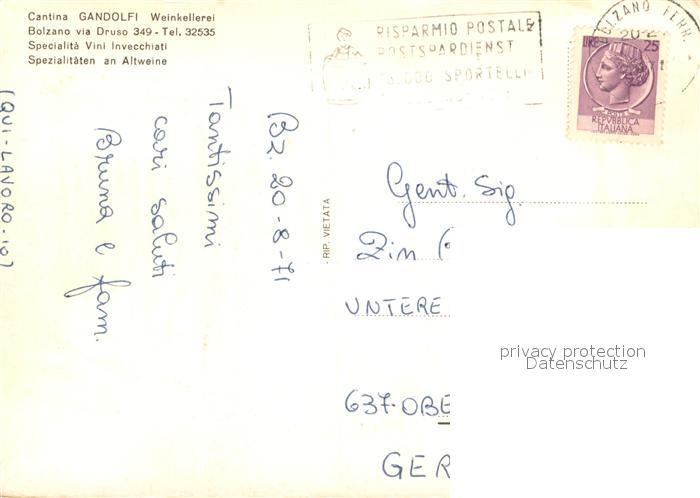 Cantina GANDOLFI Weinkellerei
Bolzano via Druso 349 - Tel. 32535
Specialità Vini Invecchiati
Spezialitäten an Altweine
RISPARMIO POSTALE
POSTSPARDIENST
SPORTELLI
LZANO FERR.
20-
LIRE 25
POSTE
REPVBBLICA
ITALIANA
Bz. 20-8-71
Tantissimi
cari saluti
Bruna e fam.
(QUI-LAVORO-IO)
RIP. VIETATA
Gent. Sig.
Zin
UNTERE
637-OBE
GER
privacy protection
Datenschutz